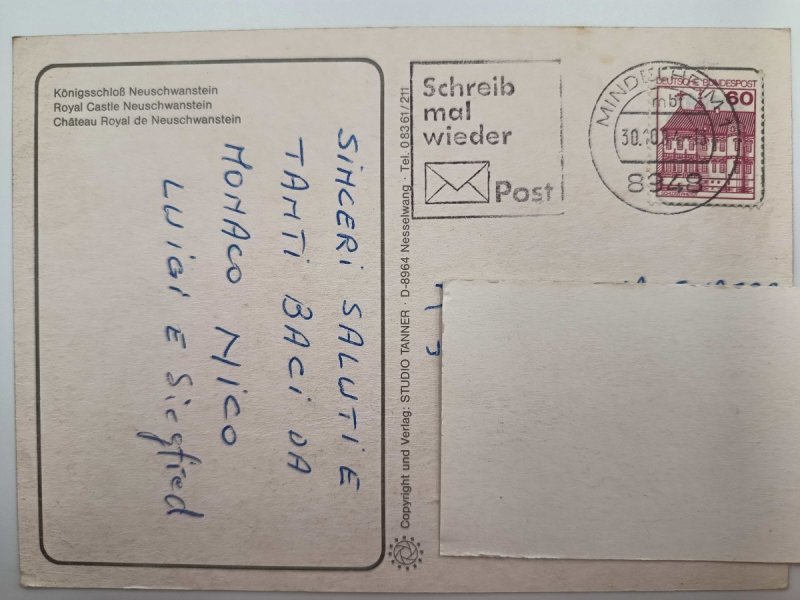 Königsschloß Neuschwanstein
Royal Castle Neuschwanstein
Château Royal de Neuschwanstein
SINCERI SALUTI E
TANTI BACI DA
MONACO NICO
LUIGI E Siegfied
Copyright und Verlag: STUDIO TANNER · D-8964 Nesselwang · Tel. 0 83 61 / 2 11
Schreib
mal
wieder
Post
MINDELHEIM
mb
30.10.
8948
DEUTSCHE BUNDESPOST
60